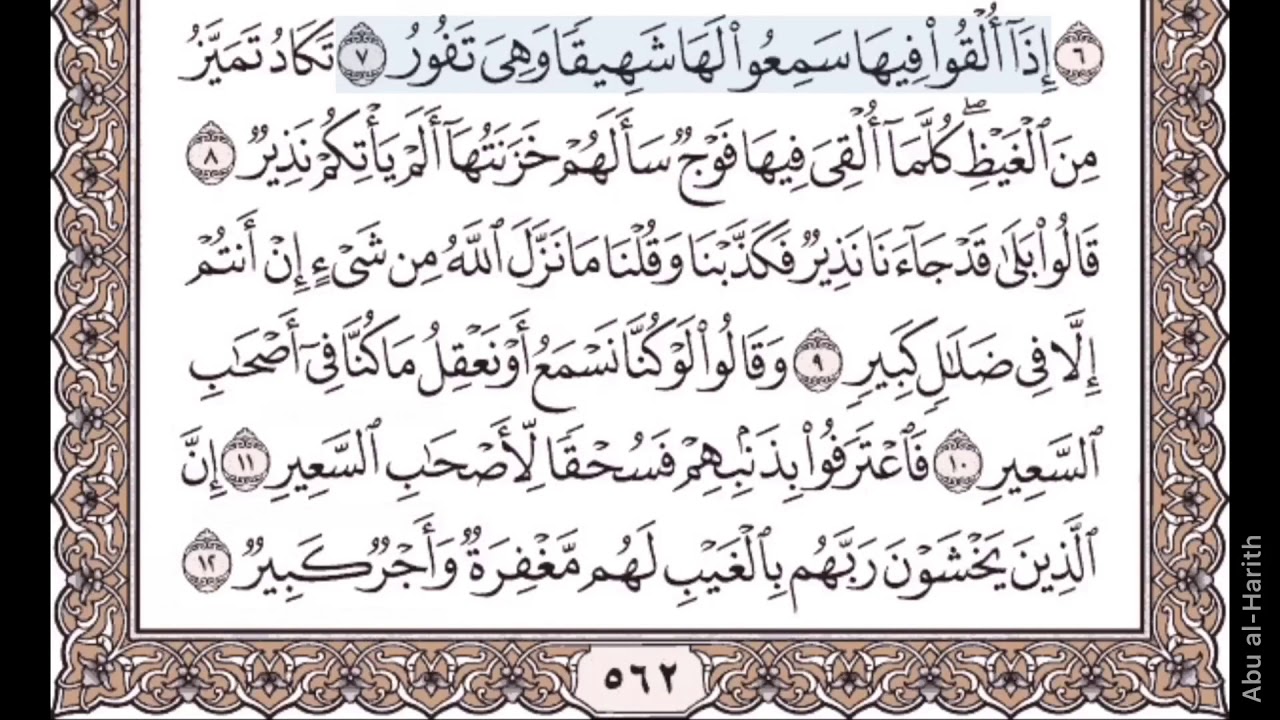 ٦ إِذَآ أُلْقُوا۟ فِيهَا سَمِعُوا۟ لَهَا شَهِيقًا وَهِىَ تَفُورُ ٧ تَكَادُ تَمَيَّزُ
مِنَ ٱلْغَيْظِ ۖ كُلَّمَآ أُلْقِىَ فِيهَا فَوْجٌ سَأَلَهُمْ خَزَنَتُهَآ أَلَمْ يَأْتِكُمْ نَذِيرٌ ٨
قَالُوا۟ بَلَىٰ قَدْ جَآءَنَا نَذِيرٌ فَكَذَّبْنَا وَقُلْنَا مَا نَزَّلَ ٱللَّهُ مِن شَىْءٍ إِنْ أَنتُمْ
إِلَّا فِى ضَلَـٰلٍ كَبِيرٍ ٩ وَقَالُوا۟ لَوْ كُنَّا نَسْمَعُ أَوْ نَعْقِلُ مَا كُنَّا فِىٓ أَصْحَـٰبِ
ٱلسَّعِيرِ ١٠ فَٱعْتَرَفُوا۟ بِذَنۢبِهِمْ فَسُحْقًا لِّأَصْحَـٰبِ ٱلسَّعِيرِ ١١ إِنَّ
ٱلَّذِينَ يَخْشَوْنَ رَبَّهُم بِٱلْغَيْبِ لَهُم مَّغْفِرَةٌ وَأَجْرٌ كَبِيرٌ ١٢
٥٦٢
Abu al-Harith